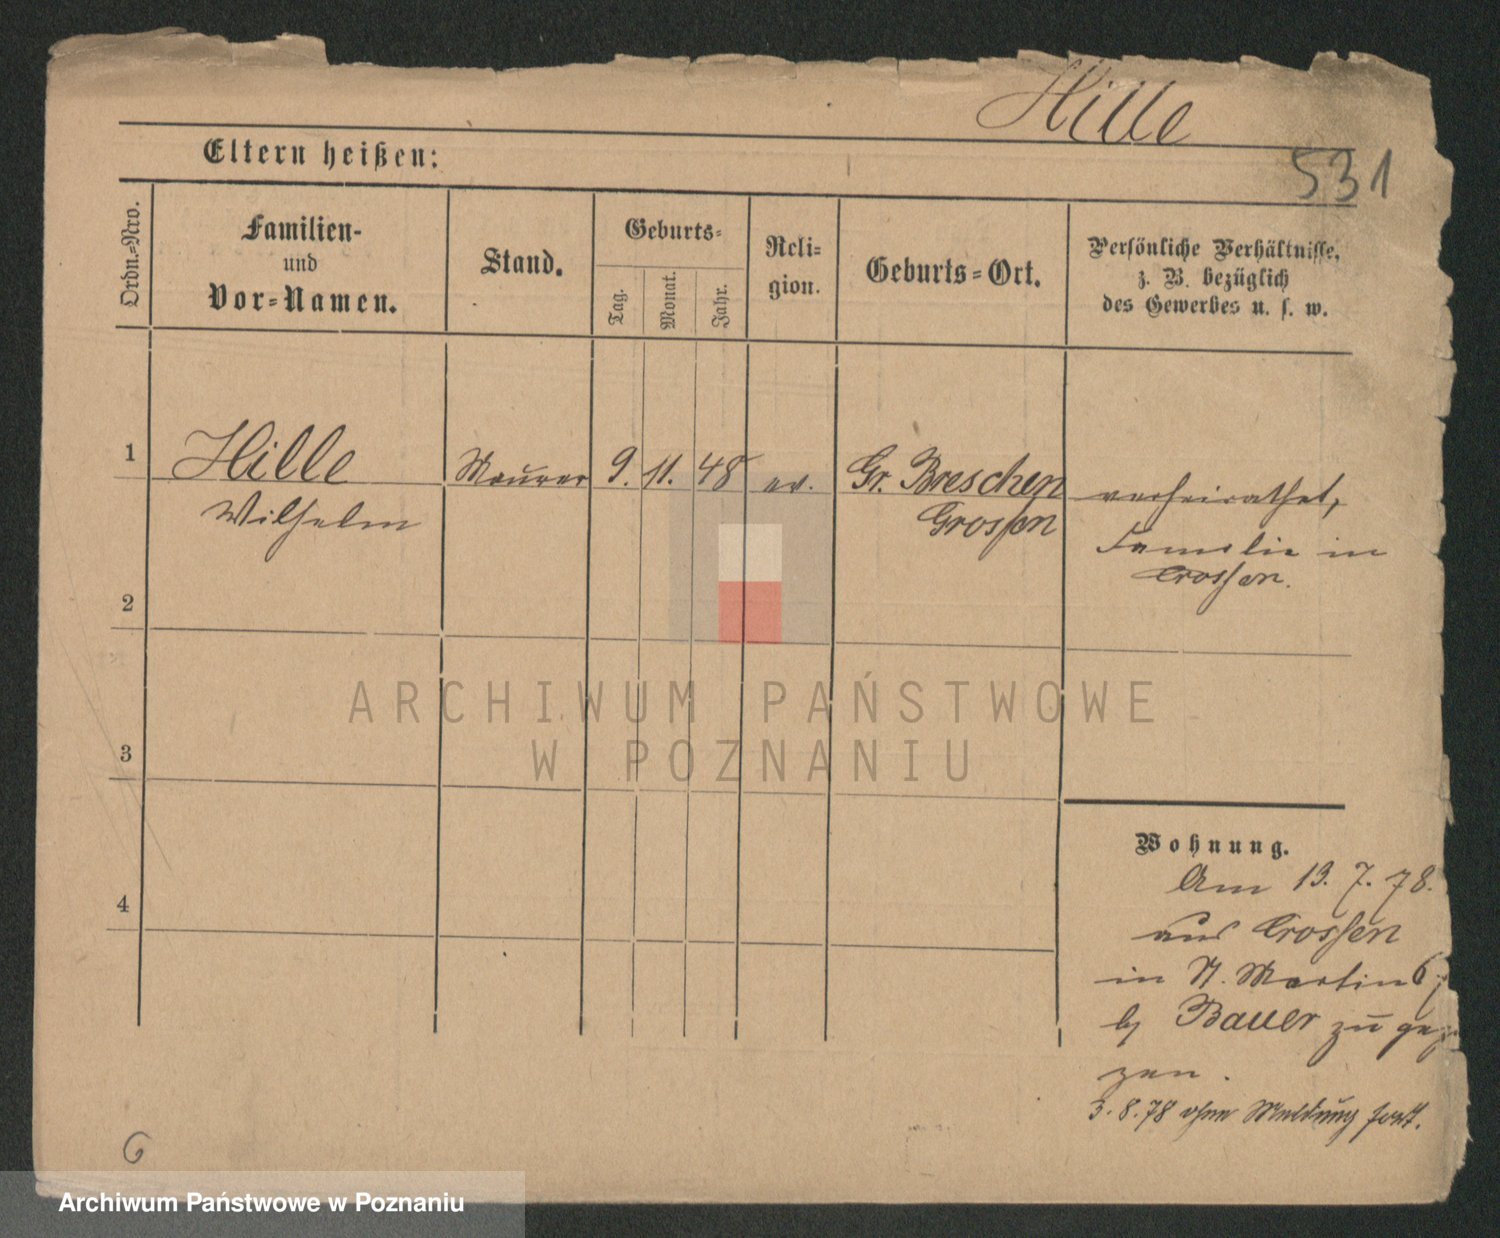 Hille
531
Eltern heißen:
Ordn.-Nro.
Familien-
und
Vor-Namen.
Stand.
Geburts-
Tag.
Monat.
Jahr.
Reli-
gion.
Geburts-Ort.
Persönliche Verhältnisse,
z. B. bezüglich
des Gewerbes u. s. w.
1
Hille Maurer 9. 11. 48 ev. Gr. Breschen verheirathet,
Wilhelm Crossen Familie in
Crossen.
2
3
4
Wohnung.
Am 13. 7. 78.
aus Crossen
in St. Martin 6
b/ Bauer zu ge
zen.
3. 8. 78 ohne Meldung fort.
6
ARCHIWUM PAŃSTWOWE
W POZNANIU
Archiwum Państwowe w Poznaniu